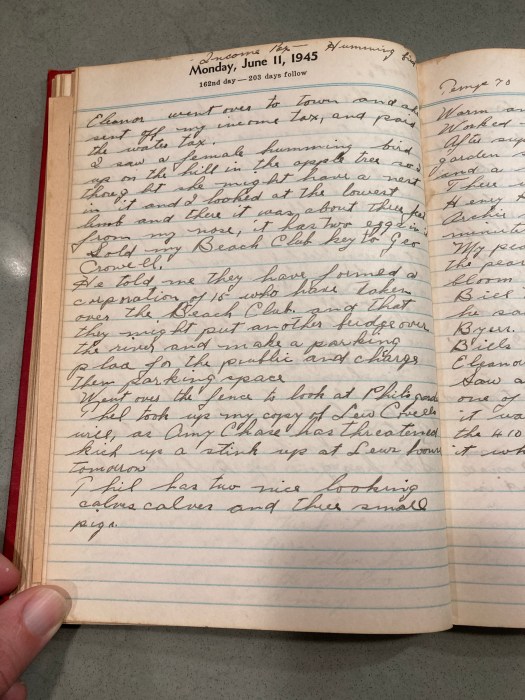 Income tax — Humming bird
Monday, June 11, 1945
162nd day — 203 days follow
Eleanor went over to town and
sent off my income tax, and paid
the water tax.
I saw a female humming bird
up on the hill in the apple tree so I
thought she might have a nest
in it and I looked at the lowest
limb and there it was about three feet
from my nose, it has two eggs in it
Sold my Beach Club key to Geo
Crowell.
He told me they have formed a
corporation of 15 who have taken
over the Beach Club and that
they might put another bridge over
the river and make a parking
plac for the public and charge
them parking space
Went over the fence to look at Phils garden
Phil took up my copy of Lew Covells
will, as Amy Chase has threatened
kick up a stink up at Lews house
tomorrow
Phil has two nice looking
calves calves and three small
pigs.
Temp 70
Warm a
Worked
After sup
garden
and a
There
Henry
Archie
minute
My pea
the pear
bloom
Bill
he sa
Byers.
Bills
Eleano
Saw a
one of
it wa
the 410
it wh